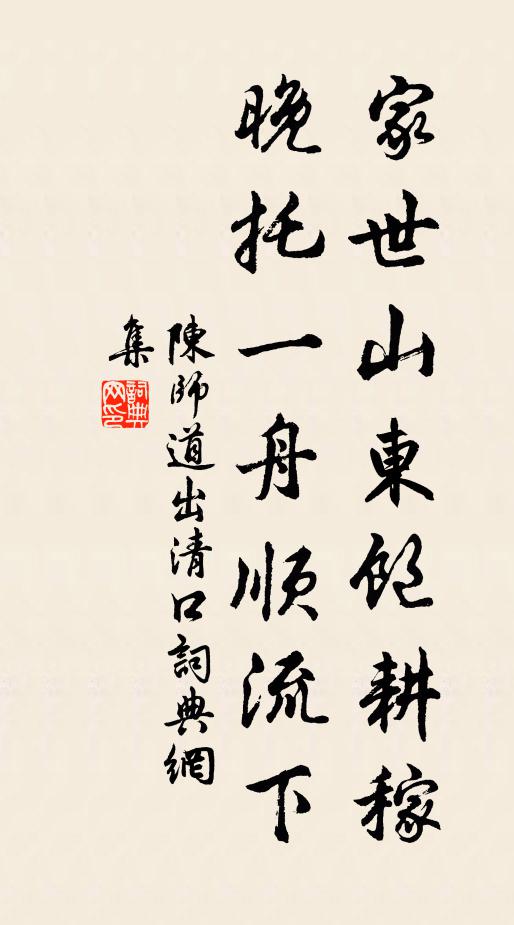 家世山東飽耕稼
晚托一舟順流下
陳師道出清口詞典網
集
詞典
网印